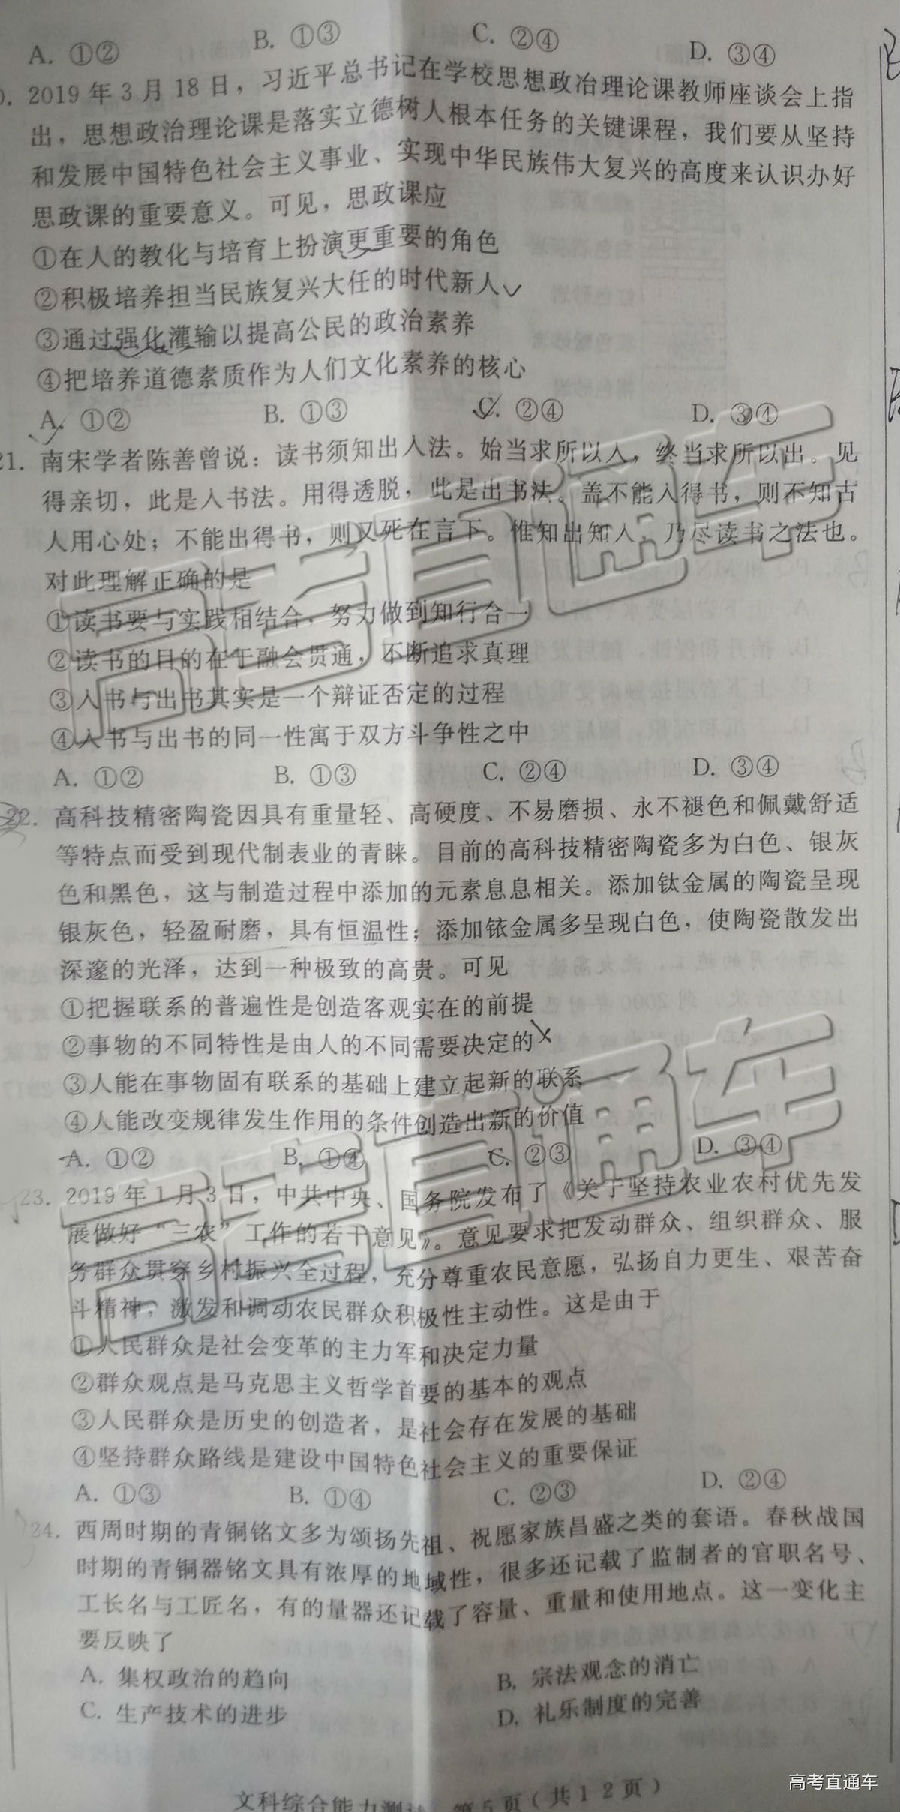 A. ①② B. ①③ C. ②④ D. ③④
0. 2019年3月18日，习近平总书记在学校思想政治理论课教师座谈会上指
出，思想政治理论课是落实立德树人根本任务的关键课程，我们要从坚持
和发展中国特色社会主义事业、实现中华民族伟大复兴的高度来认识办好
思政课的重要意义。可见，思政课应
①在人的教化与培育上扮演更重要的角色
②积极培养担当民族复兴大任的时代新人
③通过强化灌输以提高公民的政治素养
④把培养道德素质作为人们文化素养的核心
A. ①② B. ①③ C. ②④ D. ③④
21. 南宋学者陈善曾说：读书须知出入法。始当求所以入，终当求所以出。见
得亲切，此是入书法。用得透脱，此是出书法。盖不能入得书，则不知古
人用心处；不能出得书，则又死在言下。惟知出知入，乃尽读书之法也。
对此理解正确的是
①读书要与实践相结合，努力做到知行合一
②读书的目的在于融会贯通，不断追求真理
③入书与出书其实是一个辩证否定的过程
④入书与出书的同一性寓于双方斗争性之中
A. ①② B. ①③ C. ②④ D. ③④
22. 高科技精密陶瓷因具有重量轻、高硬度、不易磨损、永不褪色和佩戴舒适
等特点而受到现代制表业的青睐。目前的高科技精密陶瓷多为白色、银灰
色和黑色，这与制造过程中添加的元素息息相关。添加钛金属的陶瓷呈现
银灰色，轻盈耐磨，具有恒温性；添加铱金属多呈现白色，使陶瓷散发出
深邃的光泽，达到一种极致的高贵。可见
①把握联系的普遍性是创造客观实在的前提
②事物的不同特性是由人的不同需要决定的
③人能在事物固有联系的基础上建立起新的联系
④人能改变规律发生作用的条件创造出新的价值
A. ①② B. ①④ C. ②③ D. ③④
23. 2019年1月3日，中共中央、国务院发布了《关于坚持农业农村优先发
展做好“三农”工作的若干意见》。意见要求把发动群众、组织群众、服
务群众贯穿乡村振兴全过程，充分尊重农民意愿，弘扬自力更生、艰苦奋
斗精神，激发和调动农民群众积极性主动性。这是由于
①人民群众是社会变革的主力军和决定力量
②群众观点是马克思主义哲学首要的基本的观点
③人民群众是历史的创造者，是社会存在发展的基础
④坚持群众路线是建设中国特色社会主义的重要保证
A. ①③ B. ①④ C. ②③ D. ②④
24. 西周时期的青铜铭文多为颂扬先祖、祝愿家族昌盛之类的套语。春秋战国
时期的青铜器铭文具有浓厚的地域性，很多还记载了监制者的官职名号、
工长名与工匠名，有的量器还记载了容量、重量和使用地点。这一变化主
要反映了
A. 集权政治的趋向 B. 宗法观念的消亡
C. 生产技术的进步 D. 礼乐制度的完善
文科综合能力测试 第5页（共12页）
高考直通车
高考直通车
高考直通车